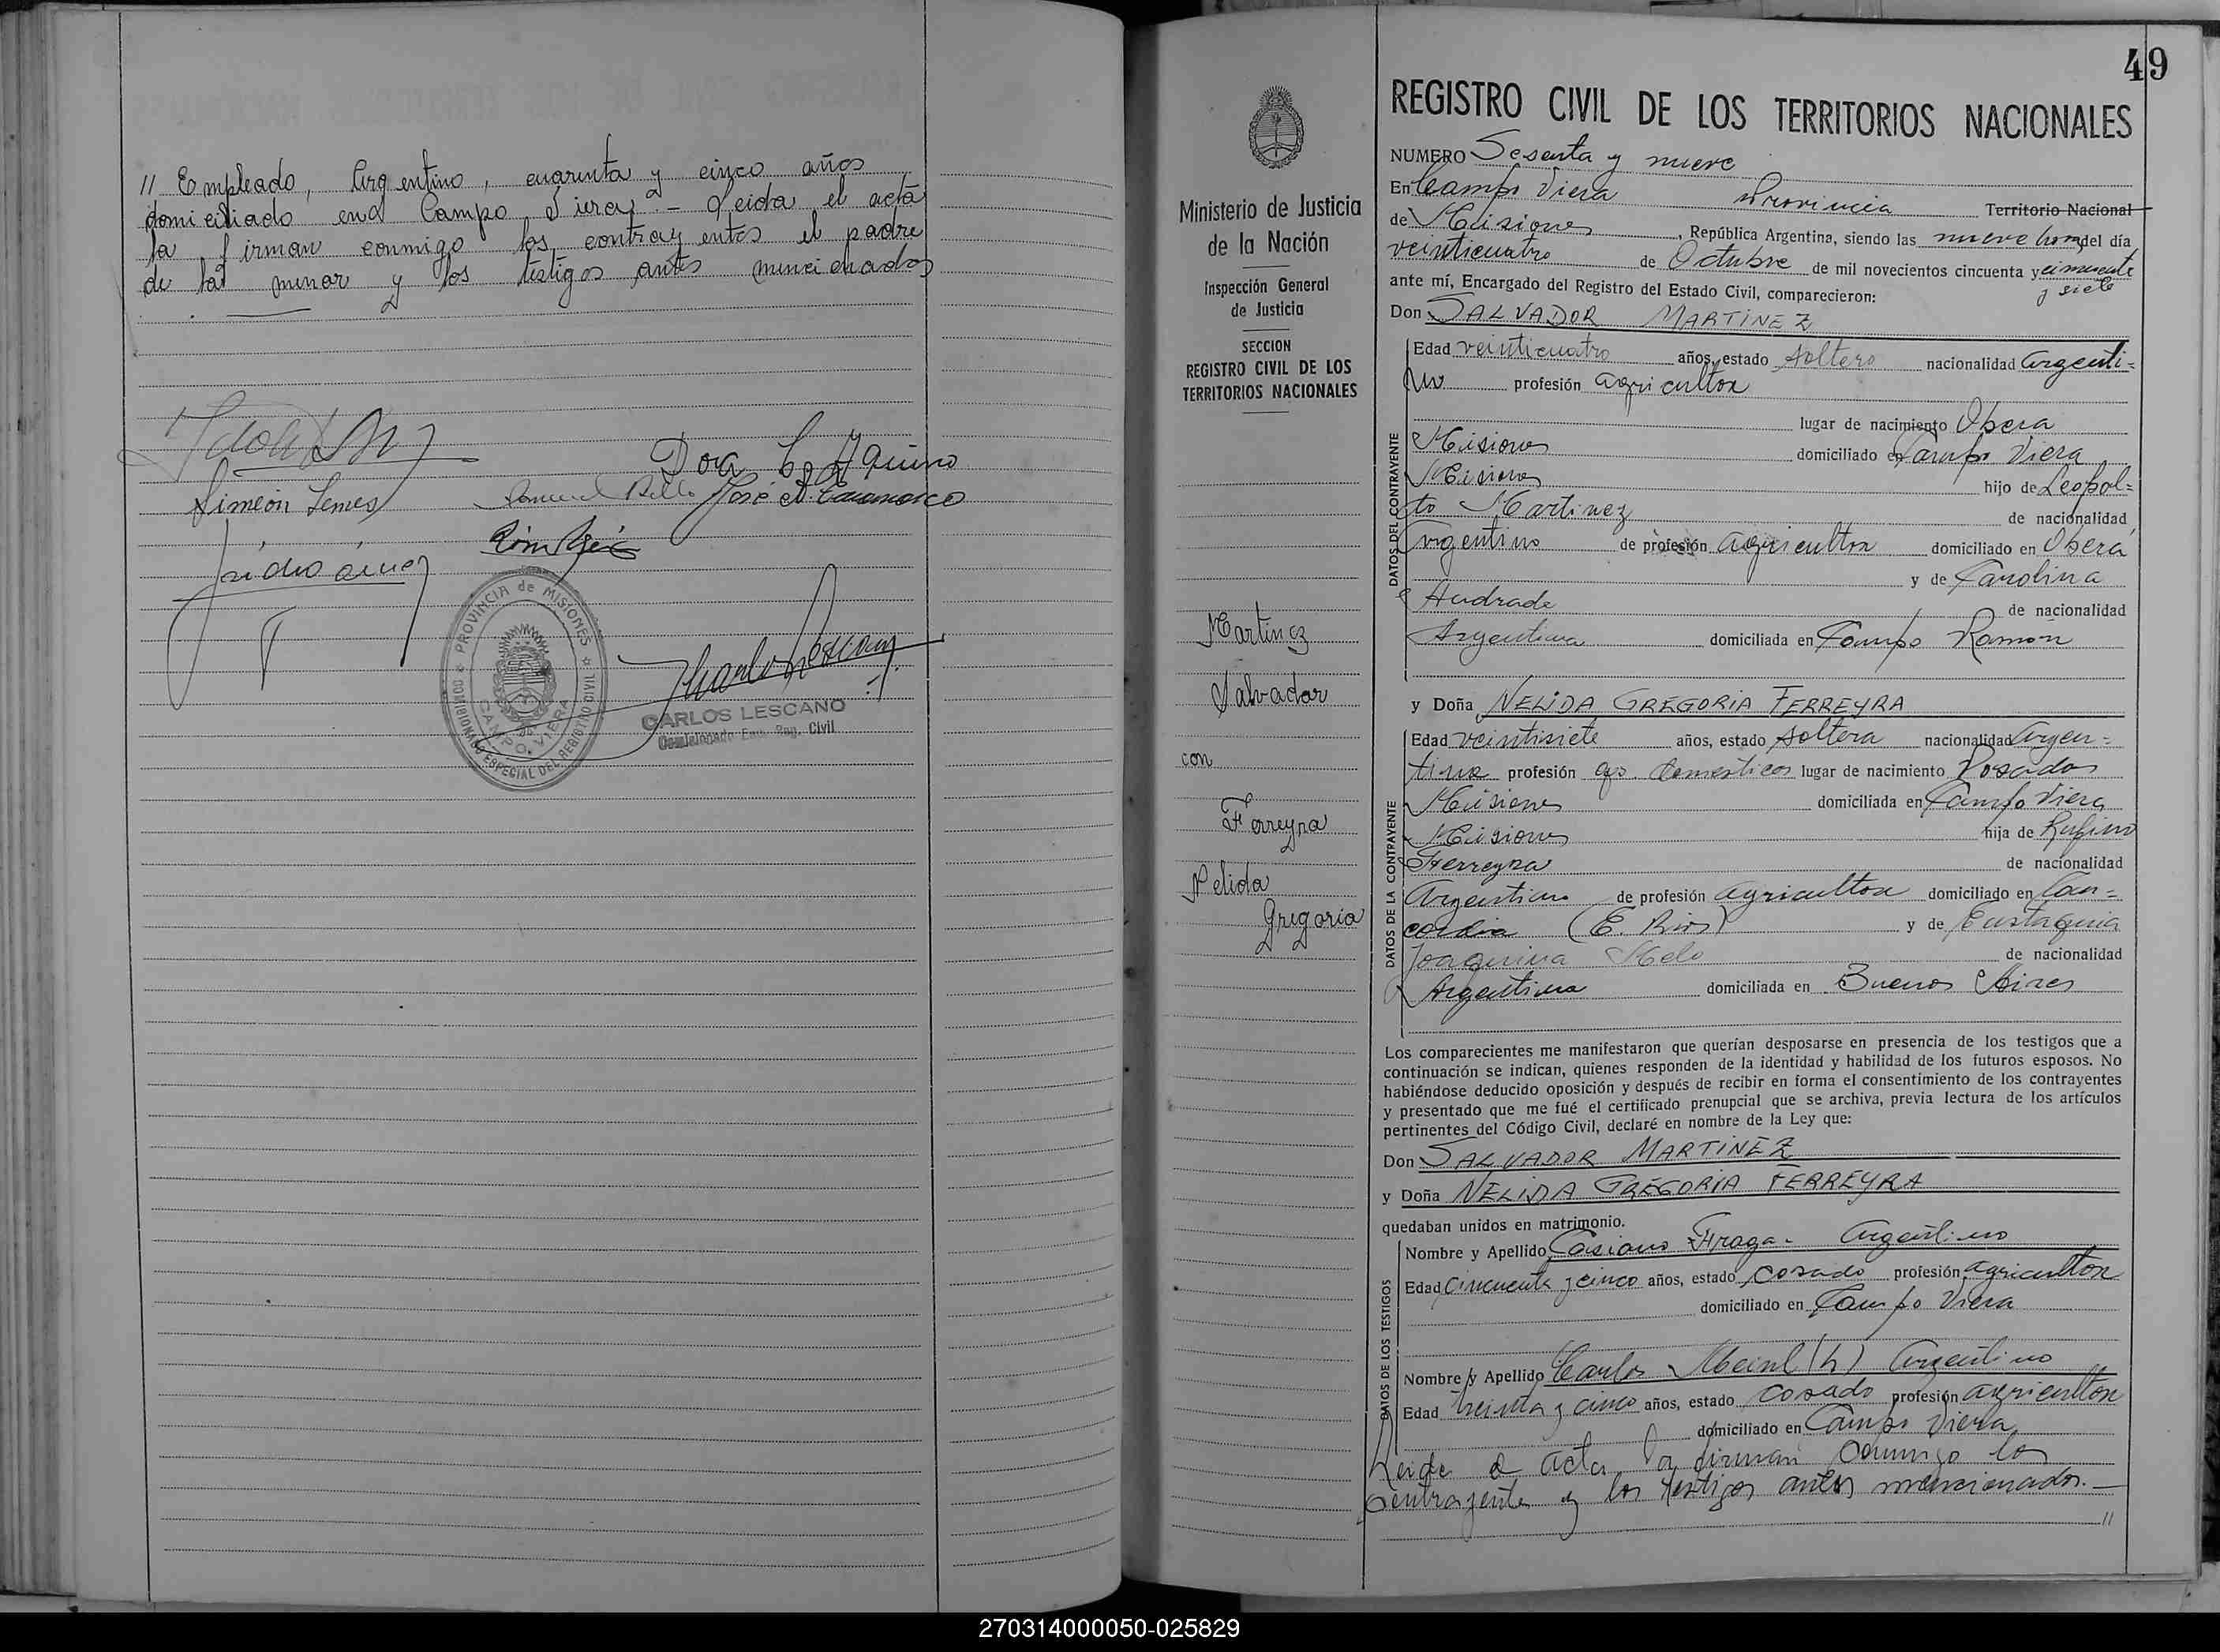 // Empleado, Argentino, cuarenta y cinco años
domiciliado en Campo Viera. – Leida el acta
la firman conmigo los contrayentes el padre
de la menor y los testigos antes mencionados
Simeón Lemes
José A.
PROVINCIA de MISIONES
CAMPO VIERA
COMISIONADO ESPECIAL DEL REGISTRO CIVIL
CARLOS LESCANO
Comisionado Esp. Reg. Civil
Ministerio de Justicia
de la Nación
Inspección General
de Justicia
SECCION
REGISTRO CIVIL DE LOS
TERRITORIOS NACIONALES
Martínez
Salvador
con
Ferreyra
Nelida
Gregoria
49
REGISTRO CIVIL DE LOS TERRITORIOS NACIONALES
NUMERO Sesenta y nueve
En Campo Viera Provincia Territorio Nacional
de Misiones, República Argentina, siendo las nueve horas del día
veinticuatro de Octubre de mil novecientos cincuenta y cincuenta
y siete
ante mí, Encargado del Registro del Estado Civil, comparecieron:
Don SALVADOR MARTINEZ
DATOS DEL CONTRAYENTE
Edad veinticuatro años, estado soltero nacionalidad Argenti=
no profesión agricultor
lugar de nacimiento Obera
Misiones domiciliado en Campo Viera
Misiones hijo de Leopol=
do Martinez de nacionalidad
Argentino de profesión agricultor domiciliado en Oberá
y de Carolina
Andrade de nacionalidad
Argentina domiciliada en Campo Ramón
y Doña NELIDA GREGORIA FERREYRA
DATOS DE LA CONTRAYENTE
Edad veintisiete años, estado soltera nacionalidad Argen=
tina profesión qs. domesticos lugar de nacimiento Posadas
Misiones domiciliada en Campo Viera
Misiones hija de Rufino
Ferreyra de nacionalidad
Argentino de profesión agricultor domiciliado en Con=
cordia (E. Rios) y de Eustaquia
Joaquina Melo de nacionalidad
Argentina domiciliada en Buenos Aires
Los comparecientes me manifestaron que querían desposarse en presencia de los testigos que a
continuación se indican, quienes responden de la identidad y habilidad de los futuros esposos. No
habiéndose deducido oposición y después de recibir en forma el consentimiento de los contrayentes
y presentado que me fué el certificado prenupcial que se archiva, previa lectura de los artículos
pertinentes del Código Civil, declaré en nombre de la Ley que:
Don SALVADOR MARTINEZ
y Doña NELIDA GREGORIA FERREYRA
quedaban unidos en matrimonio.
DATOS DE LOS TESTIGOS
Nombre y Apellido Casiano Fraga - Argentino
Edad cincuenta y cinco años, estado casado profesión agricultor
domiciliado en Campo Viera
Nombre y Apellido Carlos (h) Argentino
Edad treinta y cinco años, estado casado profesión agricultor
domiciliado en Campo Viera
Leida el acta la firman conmigo los
contrayentes y los testigos antes mencionados. –
//
270314000050-025829